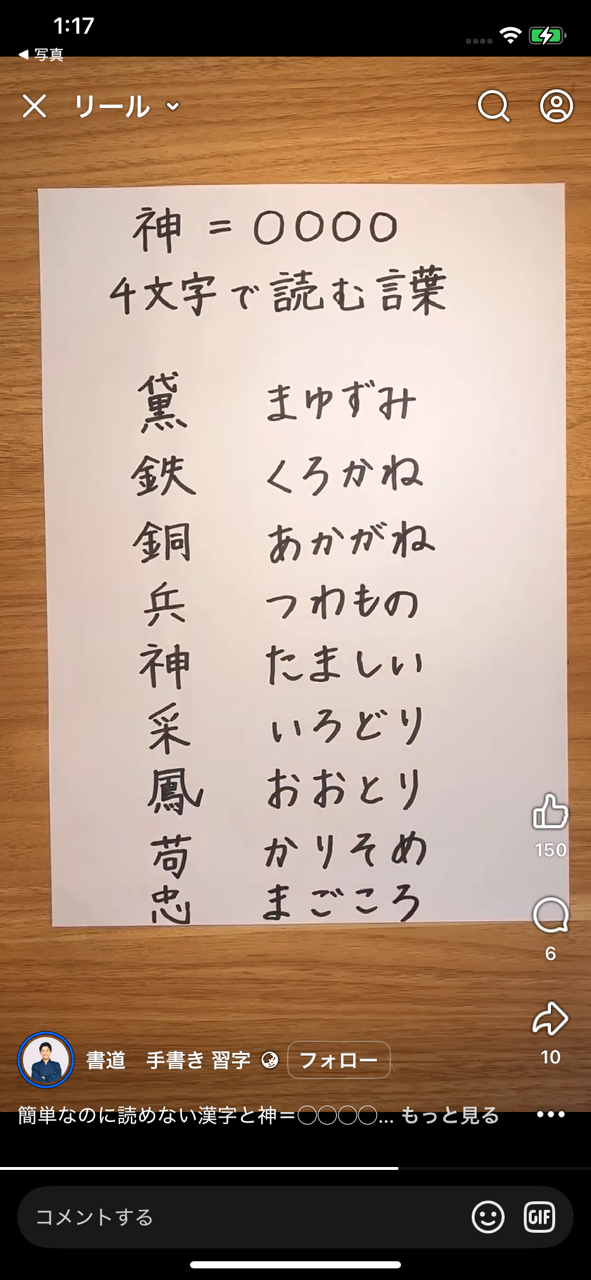 1:17
◀ 写真
リール
神 = 〇〇〇〇
4文字で読む言葉
黛 まゆずみ
鉄 くろかね
銅 あかがね
兵 つわもの
神 たましい
采 いろどり
鳳 おおとり
苟 かりそめ
忠 まごころ
150
6
10
書道　手書き 習字 フォロー
簡単なのに読めない漢字と神＝◯◯◯◯... もっと見る
コメントする
GIF